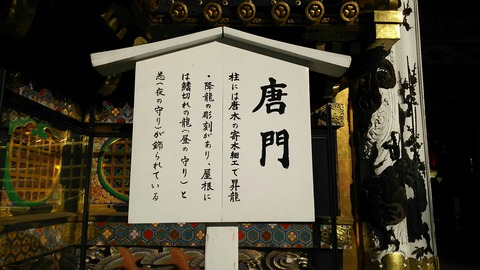 唐門
柱には唐木の寄木細工で昇龍
・降龍の彫刻があり、屋根に
は鰭切れの龍(昼の守り)と
恙(夜の守り)が飾られている